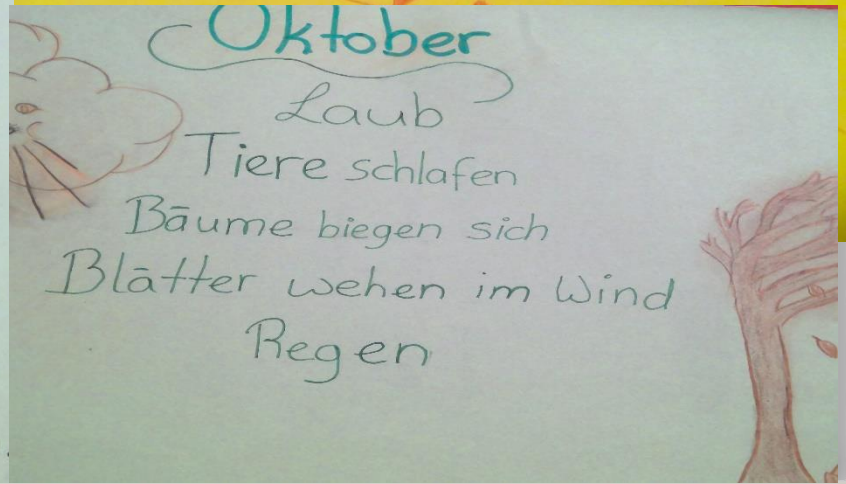 Oktober
Laub
Tiere schlafen
Bäume biegen sich
Blätter wehen im Wind
Regen